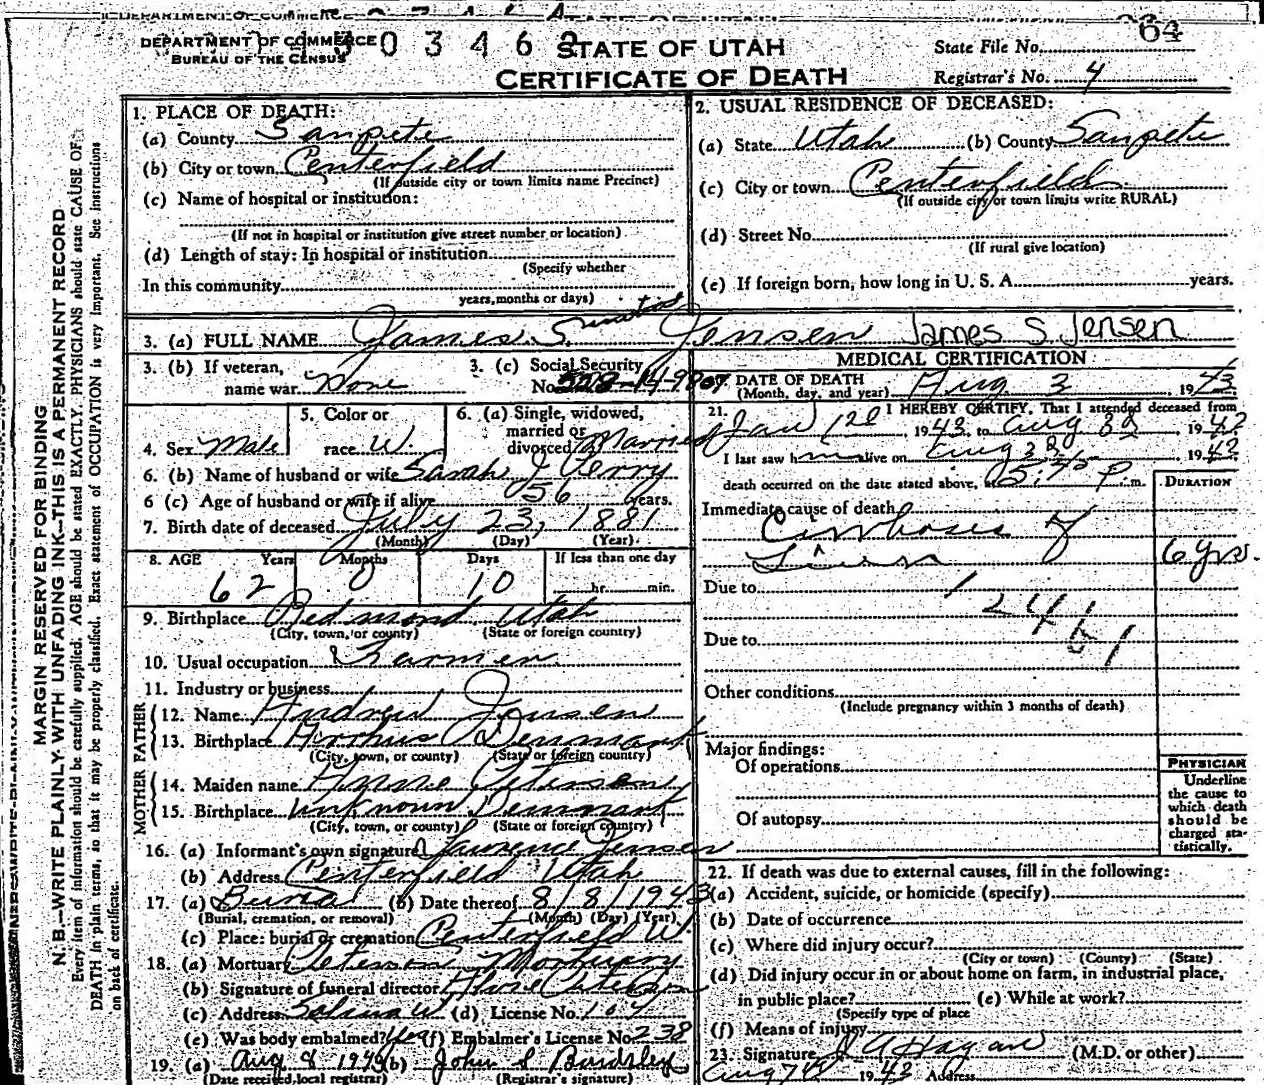 DEPARTMENT OF COMMERCE
BUREAU OF THE CENSUS
STATE OF UTAH
CERTIFICATE OF DEATH
64
State File No.
Registrar's No. 4
MARGIN RESERVED FOR BINDING
N. B.—WRITE PLAINLY, WITH UNFADING INK—THIS IS A PERMANENT RECORD
Every item of information should be carefully supplied. AGE should be stated EXACTLY. PHYSICIANS should state CAUSE OF
DEATH in plain terms, so that it may be properly classified. Exact statement of OCCUPATION is very important. See instructions
on back of certificate.
1. PLACE OF DEATH:
(a) County Sanpete
(b) City or town Centerfield
(If outside city or town limits name Precinct)
(c) Name of hospital or institution:
(If not in hospital or institution give street number or location)
(d) Length of stay: In hospital or institution
(Specify whether
In this community
years, months or days)
2. USUAL RESIDENCE OF DECEASED:
(a) State Utah (b) County Sanpete
(c) City or town Centerfield
(If outside city or town limits write RURAL)
(d) Street No.
(If rural give location)
(e) If foreign born, how long in U. S. A. years.
3. (a) FULL NAME James S. Jensen James S Jensen
3. (b) If veteran, name war None
3. (c) Social Security No.
4. Sex Male
5. Color or race W.
6. (a) Single, widowed, married or divorced Married
6. (b) Name of husband or wife Sarah J Perry
6 (c) Age of husband or wife if alive 56 years.
7. Birth date of deceased July 23, 1881
(Month) (Day) (Year)
8. AGE Years Months Days If less than one day
62 0 10 hr. min.
9. Birthplace Redmond Utah
(City, town, or county) (State or foreign country)
10. Usual occupation Farmer
11. Industry or business
FATHER
12. Name Andrew Jensen
13. Birthplace Arrhus Denmark
(City, town, or county) (State or foreign country)
MOTHER
14. Maiden name Anne Petersen
15. Birthplace unknown Denmark
(City, town, or county) (State or foreign country)
16. (a) Informant's own signature Lawrence Jensen
(b) Address Centerfield Utah
17. (a) Burial (b) Date thereof 8/8/1943
(Burial, cremation, or removal) (Month) (Day) (Year)
(c) Place: burial or cremation Centerfield U
18. (a) Mortuary Peterson Mortuary
(b) Signature of funeral director
(c) Address Salina U (d) License No. 107
(e) Was body embalmed? Yes (f) Embalmer's License No. 238
19. (a) Aug 8 1943 (b) John S Bardsley
(Date received, local registrar) (Registrar's signature)
MEDICAL CERTIFICATION
20. DATE OF DEATH
(Month, day, and year) Aug 3 1943
21. I HEREBY CERTIFY, That I attended deceased from
Jan 1943, to Aug 3 1943
I last saw him alive on Aug 3 1943
death occurred on the date stated above, at P. m.
DURATION
Immediate cause of death
Cirrhosis of
Liver 6 yrs.
Due to
Due to
Other conditions
(Include pregnancy within 3 months of death)
Major findings:
Of operations
Of autopsy
PHYSICIAN
Underline
the cause to
which death
should be
charged sta-
tistically.
22. If death was due to external causes, fill in the following:
(a) Accident, suicide, or homicide (specify)
(b) Date of occurrence
(c) Where did injury occur?
(City or town) (County) (State)
(d) Did injury occur in or about home on farm, in industrial place,
in public place? (e) While at work?
(Specify type of place
(f) Means of injury
23. Signature Hagan (M.D. or other)
Aug 1943 Address